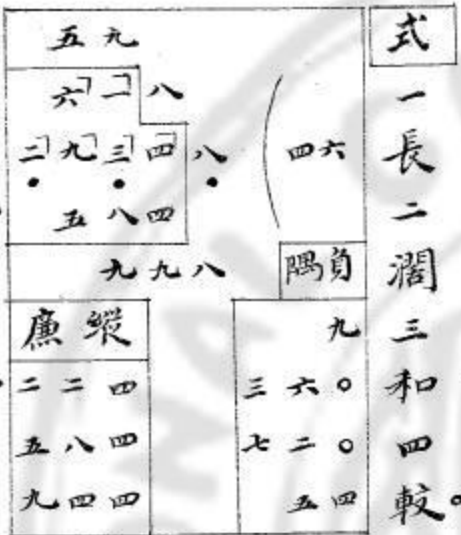 式
一長二濶三和四較。
五九
六一八
二九三四八
四六
五八四
九九八
負隅
九
三六〇
七二〇
五四
縱廉
二二四
五八四
九四四